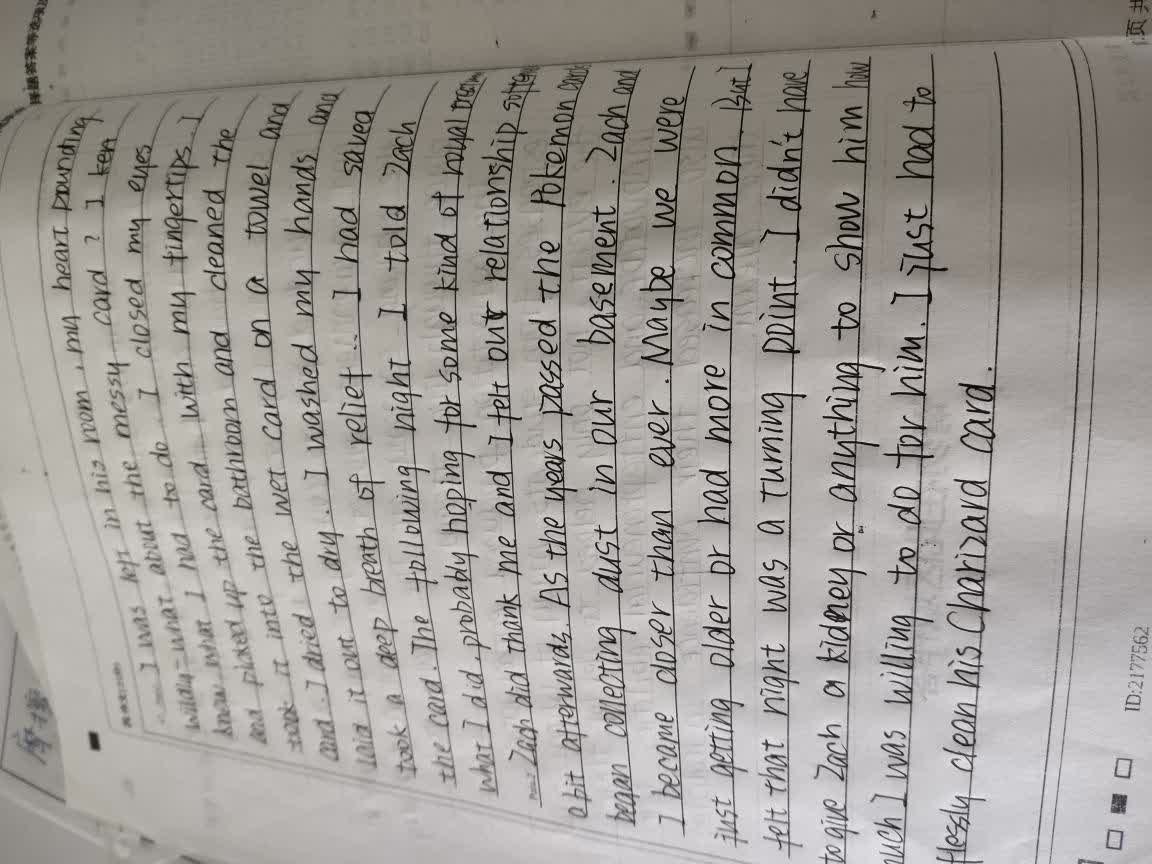 I was left in his room, my heart pounding
wildly - what about the messy card ? I
know what I had to do. I closed my eyes
and picked up the card with my fingertips. I
took it into the bathroom and cleaned the
card. I dried the wet card on a towel and
laid it out to dry. I washed my hands and
took a deep breath of relief. I had saved
the card. The following night I told Zach
what I did, probably hoping for some kind of
Zach did thank me and I felt our relationship
a bit afterwards. As the years passed the Pokemon cards
began collecting dust in our basement. Zach and
I became closer than ever. Maybe we were
just getting older or had more in common. But I
felt that night was a turning point. I didn't have
to give Zach a kidney or anything to show him how
much I was willing to do for him. I just had to
clean his Charizard card.
ID:2177562